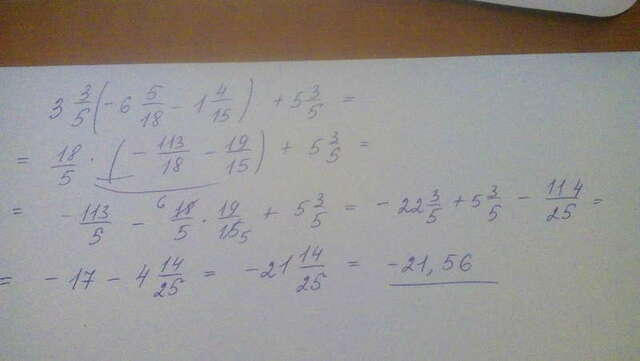 3 3/5 (-6 5/18 - 1 4/15) + 5 3/5 =
= 18/5 · (-113/18 - 19/15) + 5 3/5 =
= -113/5 - 6 18/5 · 19/15 5 + 5 3/5 = -22 3/5 + 5 3/5 - 114/25 =
= -17 - 4 14/25 = -21 14/25 = -21,56